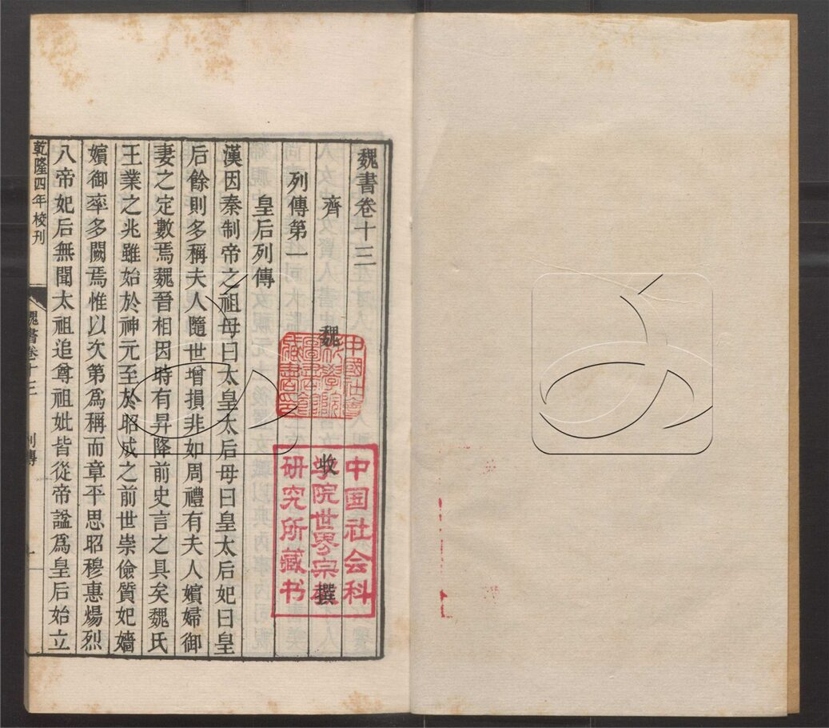 魏書卷十三
齊 魏 收 撰
列傳第一
皇后列傳
漢因秦制帝之祖母曰太皇太后母曰皇太后妃曰皇
后餘則多稱夫人隨世增損非如周禮有夫人嬪婦御
妻之定數焉魏晉相因時有昇降前史言之具矣魏氏
王業之兆雖始於神元至於昭成之前世崇儉質妃嬙
嬪御率多闕焉惟以次第爲稱而章平思昭穆惠煬烈
八帝妃后無聞太祖追尊祖妣皆從帝諡爲皇后始立
乾隆四年校刊
魏書卷十三 列傳 一
中國社會
科學院
圖書館
藏書
中国社会科
学院世界宗教
研究所藏书